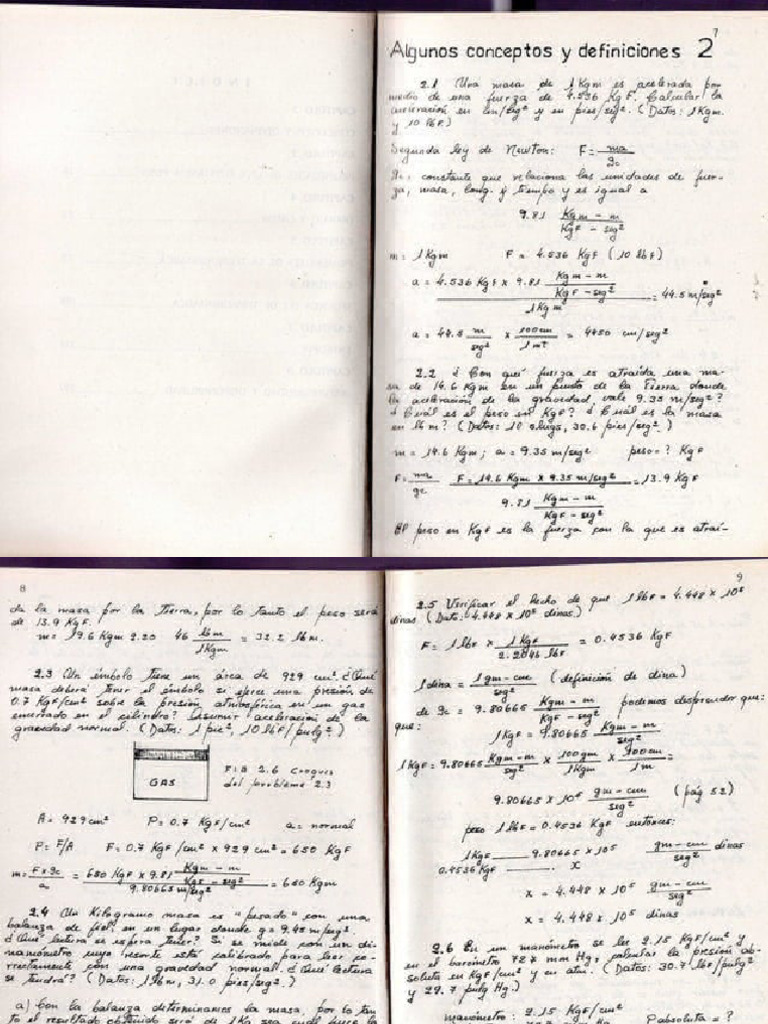 7
Algunos conceptos y definiciones 2
2.1 Una masa de 1 Kgm es acelerada por
medio de una fuerza de 4.536 KgF. Calcular la
aceleración en cm/seg² y en pies/seg². (Datos: 1 Kgm.
y 10 lbF.)
Segunda ley de Newton: F = ma / gc
gc: constante que relaciona las unidades de fuer-
za, masa, long. y tiempo y es igual a
9.81 Kgm - m / KgF - seg²
m = 1 Kgm F = 4.536 KgF (10 lbF)
a = 4.536 KgF x 9.81 Kgm - m / KgF - seg² / 1 Kgm = 44.5 m/seg²
a = 44.5 m/seg² x 100 cm / 1 mt = 4450 cm/seg²
2.2 ¿Con qué fuerza es atraída una ma-
sa de 14.6 Kgm en un punto de la Tierra donde
la aceleración de la gravedad, vale 9.35 m/seg²?
¿Cuál es el peso en KgF? ¿Cuál es la masa
en lbm? (Datos: 1 slugs, 30.6 pies/seg².)
m = 14.6 Kgm; a = 9.35 m/seg² peso = ? KgF
F = ma / gc F = 14.6 Kgm x 9.35 m/seg² / 9.81 Kgm - m / KgF - seg² = 13.9 KgF
El peso en KgF es la fuerza con la que es atraí-
8
da la masa por la Tierra, por lo tanto el peso será
de 13.9 KgF.
m = 14.6 Kgm 2.20 46 lbm / 1 Kgm = 32.2 lbm.
2.3 Un émbolo tiene un área de 929 cm². ¿Qué
masa deberá tener el émbolo si ejerce una presión de
0.7 KgF/cm² sobre la presión atmosférica en un gas
encerrado en el cilindro? Asumir aceleración de la
gravedad normal. (Datos: 1 pie², 10 lbF/pulg².)
GAS
FIG 2.6 Croquis
del problema 2.3
A = 929 cm² P = 0.7 KgF/cm² a = normal
P = F/A F = 0.7 KgF/cm² x 929 cm² = 650 KgF
m = F x gc / a = 650 KgF x 9.81 Kgm - m / KgF - seg² / 9.80665 m/seg² = 650 Kgm
2.4 Un Kilogramo masa es "pesado" con una
balanza de fiel, en un lugar donde g = 9.45 m/seg²
¿Qué lectura se espera tener? Si se mide con un di-
namómetro cuyo resorte está calibrado para leer co-
rrectamente con una gravedad normal. ¿Qué lectura
se tendrá? (Datos: 1 lbm, 31.0 pies/seg².)
a) Con la balanza determinamos la masa, por lo tan
to el resultado obtenido será de 1 Kg sea cual fuere la
9
2.5 Verificar el hecho de que 1 lbF = 4.448 x 10⁵
dinas. (Dato: 4.448 x 10⁵ dinas)
F = 1 lbF x 1 KgF / 2.2046 lbF = 0.4536 KgF
1 dina = 1 gm - cm / seg² (definición de dina)
de gc = 9.80665 Kgm - m / KgF - seg² podemos desprender que:
que: 1 KgF = 9.80665 Kgm - m / seg²
1 KgF = 9.80665 Kgm - m / seg² x 1000 gm / 1 Kgm x 100 cm / 1 m =
9.80665 x 10⁵ gm - cm / seg² (pág 52)
pero 1 lbF = 0.4536 KgF entonces:
1 KgF 9.80665 x 10⁵ gm - cm / seg² dinas
0.4536 KgF x
x = 4.448 x 10⁵ gm - cm / seg²
x = 4.448 x 10⁵ dinas
2.6 En un manómetro se lee 2.15 KgF/cm² y
en el barómetro 727 mm Hg; calcular la presión ab-
soluta en KgF/cm² y en atm. (Datos: 30.7 lbF/pulg²
y 29.7 pulg Hg.)
manómetro: 2.15 KgF/cm² Pabsoluta = ?